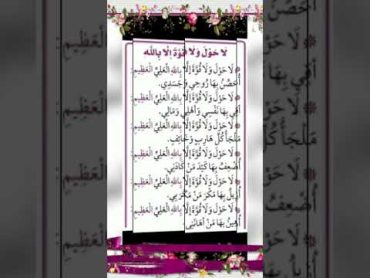 لَا حَوْلَ وَلَا قُوَّةَ إِلَّا بِاللّٰه
لَا حَوْلَ وَلَا قُوَّةَ إِلَّا بِاللهِ الْعَلِيِّ الْعَظِيمِ
أُحَصِّنُ بِهَا رُوحِي وَجَسَدِي.
لَا حَوْلَ وَلَا قُوَّةَ إِلَّا بِاللهِ الْعَلِيِّ الْعَظِيمِ
أَقِي بِهَا نَفْسِي وَأَهْلِي وَمَالِي.
لَا حَوْلَ وَلَا قُوَّةَ إِلَّا بِاللهِ الْعَلِيِّ الْعَظِيمِ
مَلْجَأُ كُلِّ هَارِبٍ وَخَائِفٍ.
لَا حَوْلَ وَلَا قُوَّةَ إِلَّا بِاللهِ الْعَلِيِّ الْعَظِيمِ
أُضْعِفُ بِهَا كَيْدَ مَنْ كَادَنِي.
لَا حَوْلَ وَلَا قُوَّةَ إِلَّا بِاللهِ الْعَلِيِّ الْعَظِيمِ
أُزِيلُ بِهَا مَكْرَ مَنْ مَكَرَ بِي.
لَا حَوْلَ وَلَا قُوَّةَ إِلَّا بِاللهِ الْعَلِيِّ الْعَظِيمِ
أُهِينُ بِهَا مَنْ أَهَانَنِي